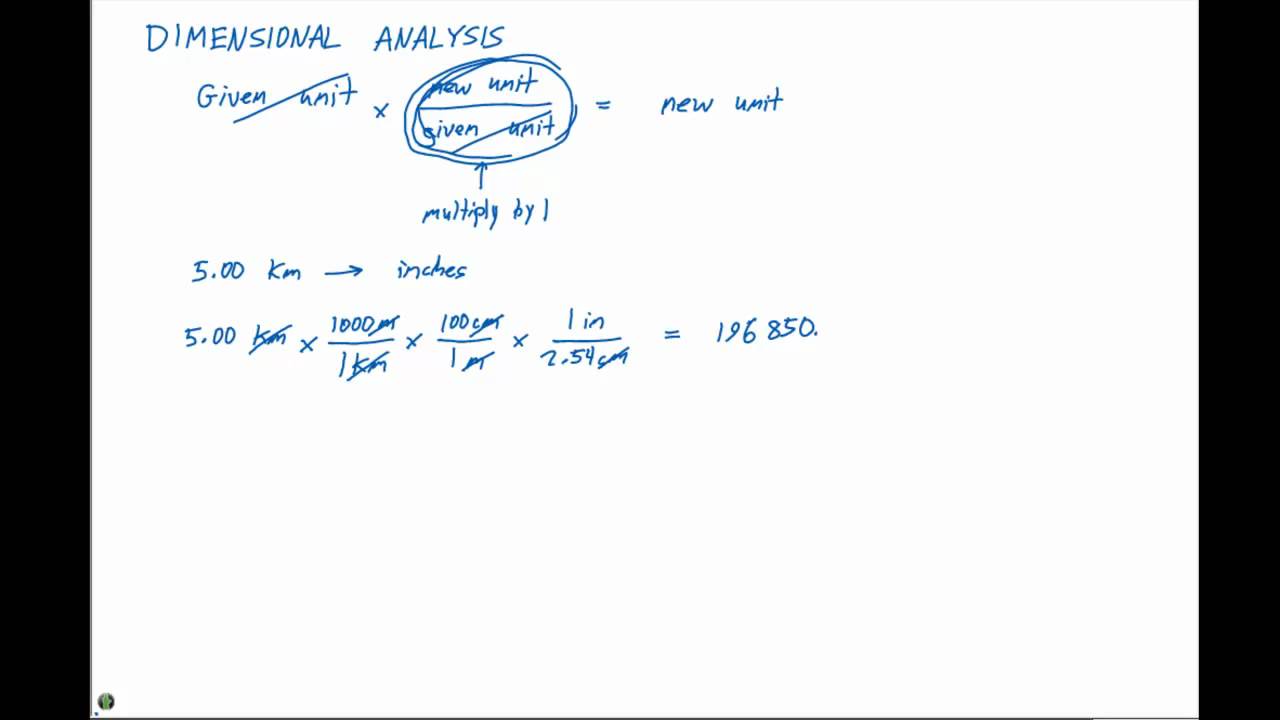 DIMENSIONAL ANALYSIS
Given unit × new unit / given unit = new unit
multiply by 1
5.00 km → inches
5.00 km × 1000m / 1km × 100cm / 1m × 1 in / 2.54cm = 196 850.